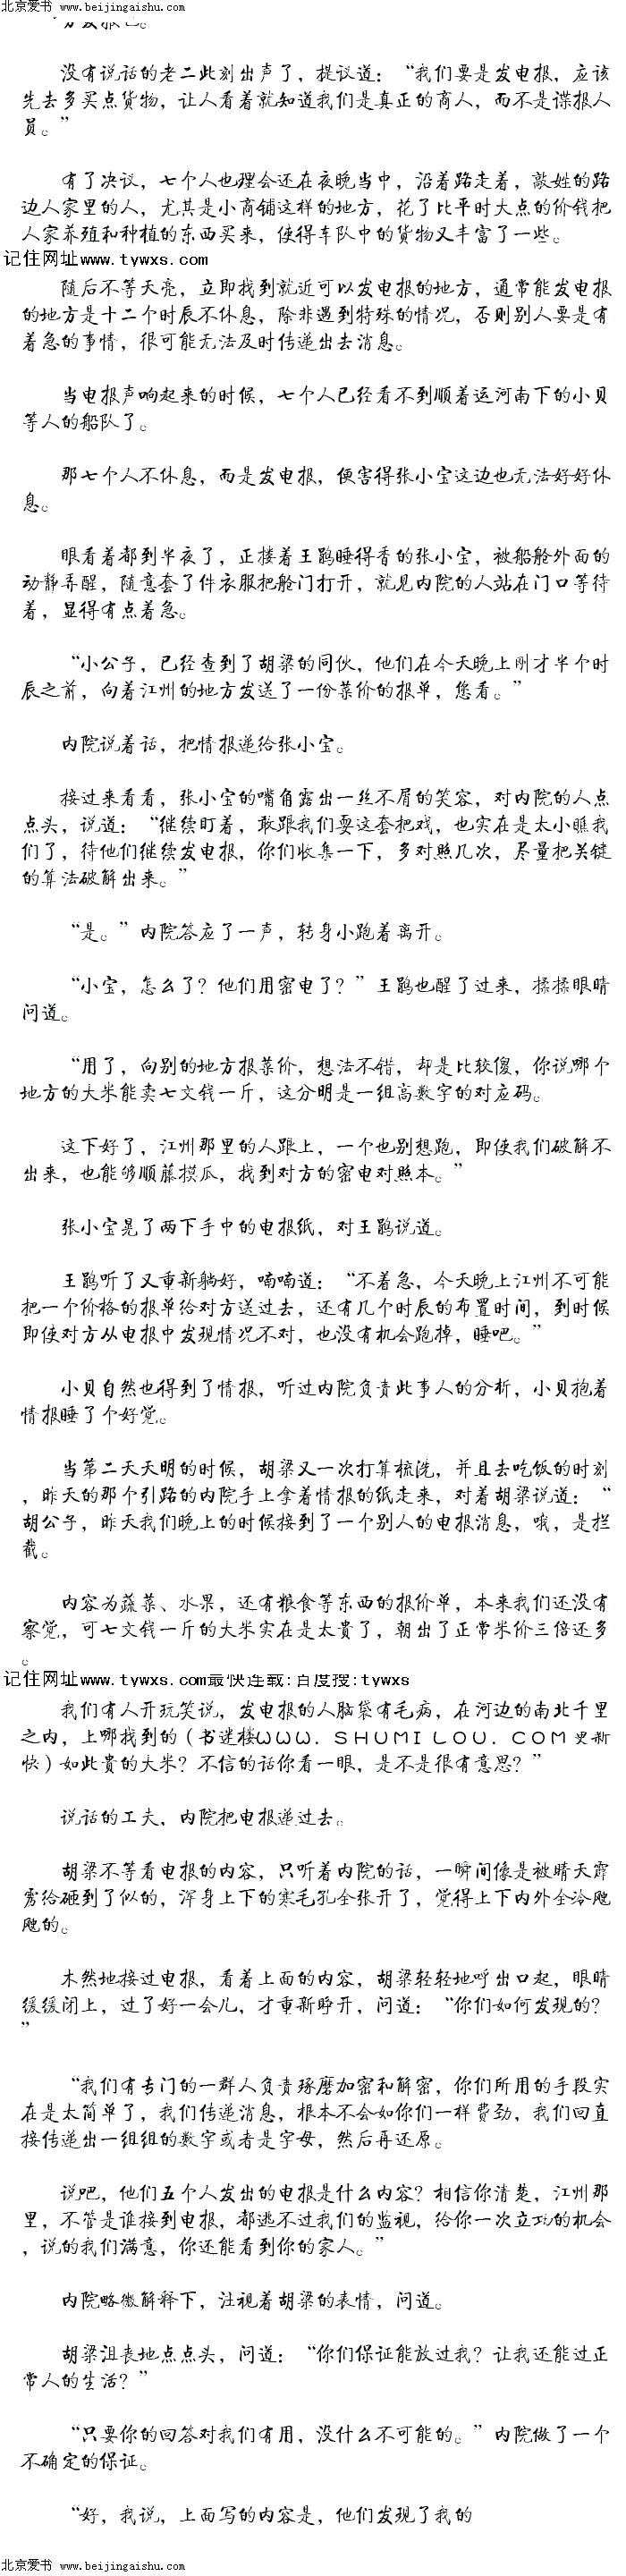 北京爱书 www.beijingaishu.com
没有说话的老二此刻出声了，提议道：“我们要是发电报，应该
先去多买点货物，让人看着就知道我们是真正的商人，而不是谍报人
员。”
有了决议，七个人也理会还在夜晚当中，沿着路走着，敲姓的路
边人家里的人，尤其是小商铺这样的地方，花了比平时大点的价钱把
人家养殖和种植的东西买来，使得车队中的货物又丰富了一些。
记住网址www.tywxs.com
随后不等天亮，立即找到就近可以发电报的地方，通常能发电报
的地方是十二个时辰不休息，除非遇到特殊的情况，否则别人要是有
着急的事情，很可能无法及时传递出去消息。
当电报声响起来的时候，七个人已经看不到顺着运河南下的小贝
等人的船队了。
那七个人不休息，而是发电报，便害得张小宝这边也无法好好休
息。
眼看着都到半夜了，正搂着王鹃睡得香的张小宝，被船舱外面的
动静弄醒，随意套了件衣服把舱门打开，就见内院的人站在门口等待
着，显得有点着急。
“小公子，已经查到了胡梁的同伙，他们在今天晚上刚才半个时
辰之前，向着江州的地方发送了一份菜价的报单，您看。”
内院说着话，把情报递给张小宝。
接过来看看，张小宝的嘴角露出一丝不屑的笑容，对内院的人点
点头，说道：“继续盯着，敢跟我们耍这套把戏，也实在是太小瞧我
们了，待他们继续发电报，你们收集一下，多对照几次，尽量把关键
的算法破解出来。”
“是。”内院答应了一声，转身小跑着离开。
“小宝，怎么了？他们用密电了？”王鹃也醒了过来，揉揉眼睛
问道。
“用了，向别的地方报菜价，想法不错，却是比较傻，你说哪个
地方的大米能卖七文钱一斤，这分明是一组高数字的对应码。
这下好了，江州那里的人跟上，一个也别想跑，即使我们破解不
出来，也能够顺藤摸瓜，找到对方的密电对照本。”
张小宝晃了两下手中的电报纸，对王鹃说道。
王鹃听了又重新躺好，喃喃道：“不着急，今天晚上江州不可能
把一个价格的报单给对方送过去，还有几个时辰的布置时间，到时候
即使对方从电报中发现情况不对，也没有机会跑掉，睡吧。”
小贝自然也得到了情报，听过内院负责此事人的分析，小贝抱着
情报睡了个好觉。
当第二天天明的时候，胡梁又一次打算梳洗，并且去吃饭的时刻
，昨天的那个引路的内院手上拿着情报的纸走来，对着胡梁说道：“
胡公子，昨天我们晚上的时候接到了一个别人的电报消息，哦，是拦
截。
内容为蔬菜、水果，还有粮食等东西的报价单，本来我们还没有
察觉，可七文钱一斤的大米实在是太贵了，朝出了正常米价三倍还多
。
记住网址www.tywxs.com最快连载:百度搜:tywxs
我们有人开玩笑说，发电报的人脑袋有毛病，在河边的南北千里
之内，上哪找到的（书迷楼ＷＷＷ．ＳＨＵＭＩＬＯＵ．ＣＯＭ更新
快）如此贵的大米？不信的话你看一眼，是不是很有意思？”
说话的工夫，内院把电报递过去。
胡梁不等看电报的内容，只听着内院的话，一瞬间像是被晴天霹
雳给砸到了似的，浑身上下的寒毛孔全张开了，觉得上下内外全冷飕
飕的。
木然地接过电报，看着上面的内容，胡梁轻轻地呼出口起，眼睛
缓缓闭上，过了好一会儿，才重新睁开，问道：“你们如何发现的？
”
“我们有专门的一群人负责琢磨加密和解密，你们所用的手段实
在是太简单了，我们传递消息，根本不会如你们一样费劲，我们回直
接传递出一组组的数字或者是字母，然后再还原。
说吧，他们五个人发出的电报是什么内容？相信你清楚，江州那
里，不管是谁接到电报，都逃不过我们的监视，给你一次立功的机会
，说的我们满意，你还能看到你的家人。”
内院略微解释下，注视着胡梁的表情，问道。
胡梁沮丧地点点头，问道：“你们保证能放过我？让我还能过正
常人的生活？”
“只要你的回答对我们有用，没什么不可能的。”内院做了一个
不确定的保证。
“好，我说，上面写的内容是，他们发现了我的
北京爱书 www.beijingaishu.com